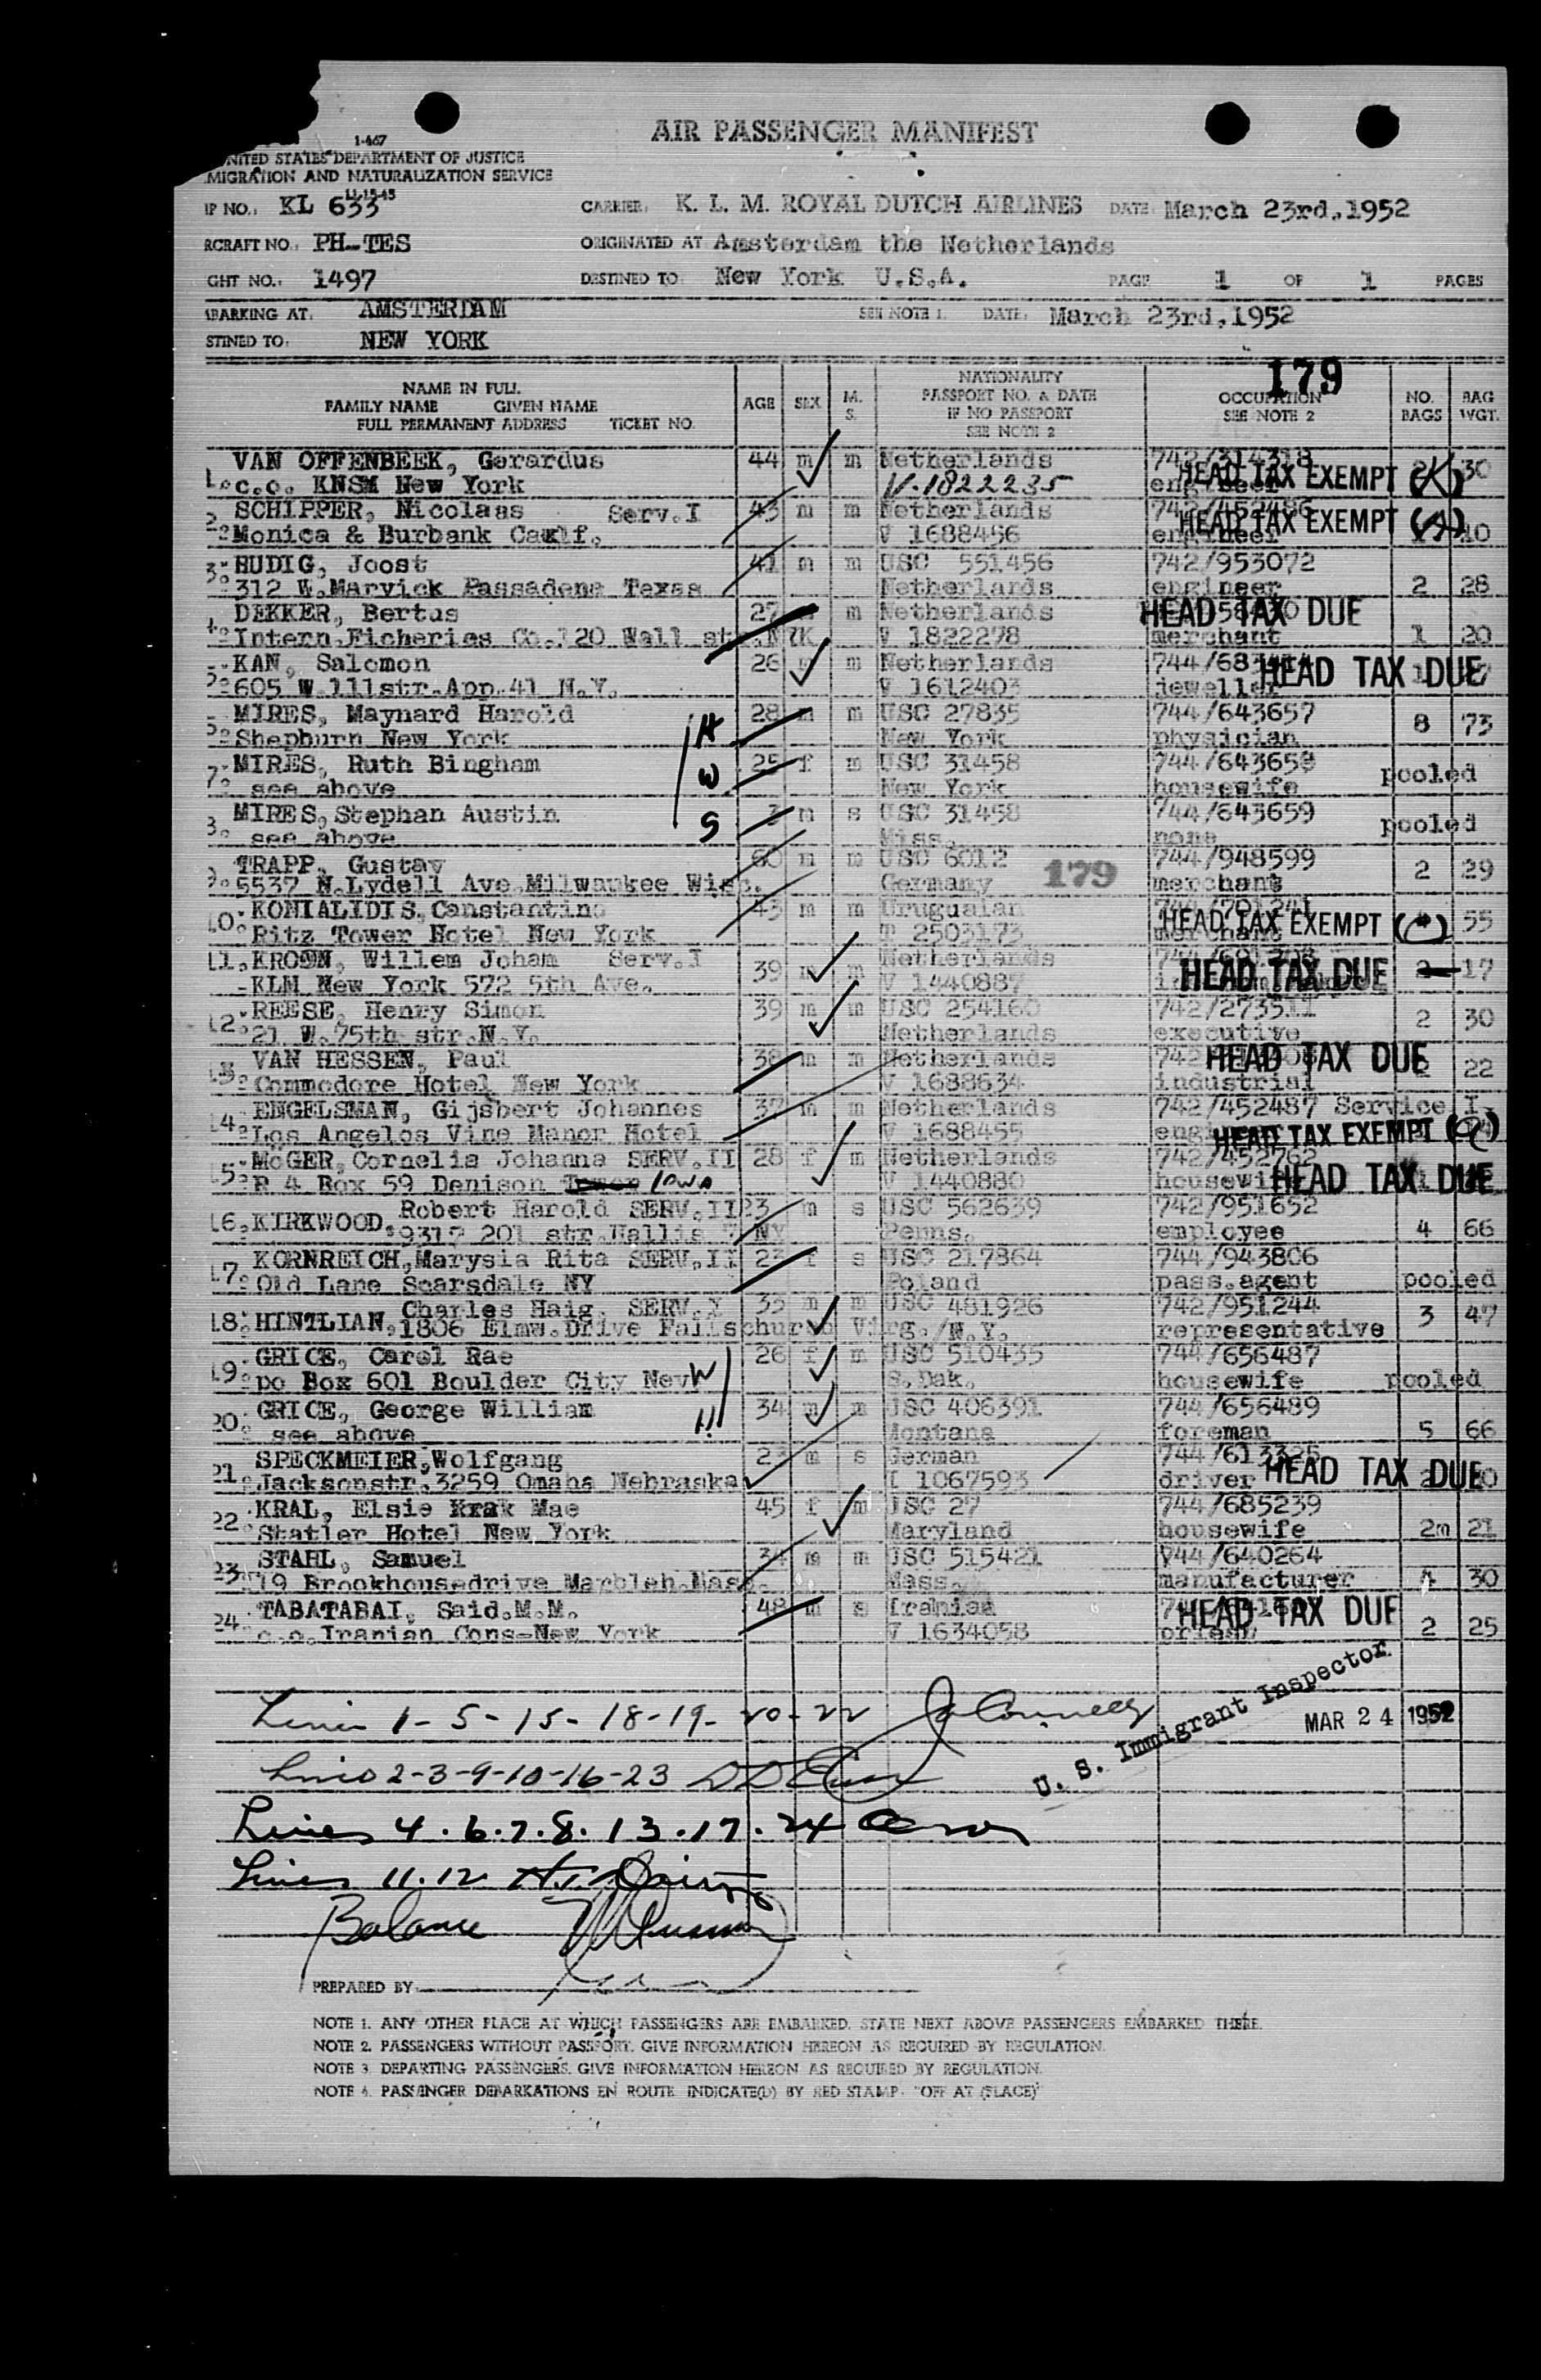 1-467
AIR PASSENGER MANIFEST
NITED STATES DEPARTMENT OF JUSTICE
MIGRATION AND NATURALIZATION SERVICE
11-15-45
IP NO.: KL 633 CARRIER: K. L. M. ROYAL DUTCH AIRLINES DATE: March 23rd.1952
RCRAFT NO. PH-TES ORIGINATED AT Amsterdam the Netherlands
GHT NO.: 1497 DESTINED TO: New York U.S.A. PAGE 1 OF 1 PAGES
BARKING AT: AMSTERDAM SEE NOTE 1. DATE: March 23rd.1952
STINED TO: NEW YORK
179
NAME IN FULL
FAMILY NAME GIVEN NAME
FULL PERMANENT ADDRESS TICKET NO.
AGE SEX M. S.
NATIONALITY
PASSPORT NO. & DATE
IF NO PASSPORT
SEE NOTE 2
OCCUPATION
SEE NOTE 2
NO. BAGS
BAG WGT.
VAN OFFENBEEK, Gerardus 44 m m Netherlands 742/314318
1. c.o. KNSM New York V.1822235 engineer HEAD TAX EXEMPT 30
SCHIPPER, Nicolaas Serv.I 43 m m Netherlands 742/452486
2. Monica & Burbank Calif. V 1688456 engineer HEAD TAX EXEMPT 10
3. RUDIG, Joost 41 m m USC 551456 742/953072
312 W.Marvick Passadena Texas Netherlands engineer 2 28
DEKKER, Bertus 27 m Netherlands HEAD TAX DUE
Intern.Ficheries Co.120 Wall str. V 1822278 merchant 1 20
KAN, Salomon 26 m Netherlands HEAD TAX DUE
605 W.111str.App.41 N.Y. V 1612403 jeweller
MIRES, Maynard Harold H 28 m m USC 27835 744/643657
Shepburn New York New York physician 8 73
7. MIRES, Ruth Bingham W 25 f m USC 31458 744/643658
see above New York housewife pooled
MIRES, Stephan Austin S 3 m s USC 31458 744/643659
see above Miss. none pooled
TRAPP, Gustav 60 m m USC 6012 744/948599
5537 N.Lydell Ave.Milwaukee Wisc. Germany 179 merchant 2 29
10. KONIALIDIS, Canstantino 43 m m Uruguaian 744/701241
Ritz Tower Hotel New York T 2503173 merchant HEAD TAX EXEMPT 55
11. KROON, Willem Joham Serv.I 39 m m Netherlands
KLM New York 572 5th Ave. V 1440887 HEAD TAX DUE 2 17
12. REESE, Henry Simon 39 m m USC 254160 742/273511
21 W.75th str.N.Y. Netherlands executive 2 30
13. VAN HESSEN, Paul 38 m m Netherlands HEAD TAX DUE
Commodore Hotel New York V 1688634 industrial 22
14. ENGELSMAN, Gijsbert Johannes 37 m m Netherlands 742/452487 Service I.
Los Angelos Vine Manor Hotel V 1688455 HEAD TAX EXEMPT
15. MöGER, Cornelia Johanna SERV.II 28 f m Netherlands 742/452762
R 4 Box 59 Denison Iowa V 1440880 housewife HEAD TAX DUE
16. KIRKWOOD, Robert Harold SERV.II 23 m s USC 562639 742/951652
9317 201 str.Hallis 7 NY Penns. employee 4 66
17. KORNREICH, Marysia Rita SERV.II 23 f s USC 217864 744/943806
Old Lane Scarsdale NY Poland pass.agent pooled
18. HINTLIAN, Charles Haig. SERV.I 35 m m USC 481926 742/951244
1806 Elmw.Drive Fallschurch Virg./N.Y. representative 3 47
19. GRICE, Carol Rae W 26 f m USC 510435 744/656487
po Box 601 Boulder City Nev S.Dak. housewife pooled
20. GRICE, George William H 34 m m USC 406391 744/656489
see above Montana foreman 5 66
21. SPECKMEIER, Wolfgang 23 m s German 744/613325
Jacksonstr.3259 Omaha Nebraska 1067593 driver HEAD TAX DUE
22. KRAL, Elsie Mae 45 f m USC 27 744/685239
Statler Hotel New York Maryland housewife 2m 21
23. STAHL, Samuel 34 m m USC 515421 744/640264
19 Brookhousedrive Marbleh.Mass. Mass. manufacturer 4 30
24. TABATABAI, Said.M.M. 48 m s Iranian HEAD TAX DUE
c.o.Iranian Cons-New York V 1634058 priest 2 25
Lines 1-5-15-18-19-20-22 U. S. Immigrant Inspector MAR 24 1952
Lines 2-3-9-10-16-23
Lines 4.6.7.8.13.17.24
Lines 11.12
Balance
PREPARED BY
NOTE 1. ANY OTHER PLACE AT WHICH PASSENGERS ARE EMBARKED. STATE NEXT ABOVE PASSENGERS EMBARKED THERE.
NOTE 2. PASSENGERS WITHOUT PASSPORT. GIVE INFORMATION HEREON AS REQUIRED BY REGULATION.
NOTE 3. DEPARTING PASSENGERS. GIVE INFORMATION HEREON AS REQUIRED BY REGULATION.
NOTE 4. PASSENGER DEBARKATIONS EN ROUTE INDICATE(D) BY RED STAMP. "OFF AT (PLACE)"